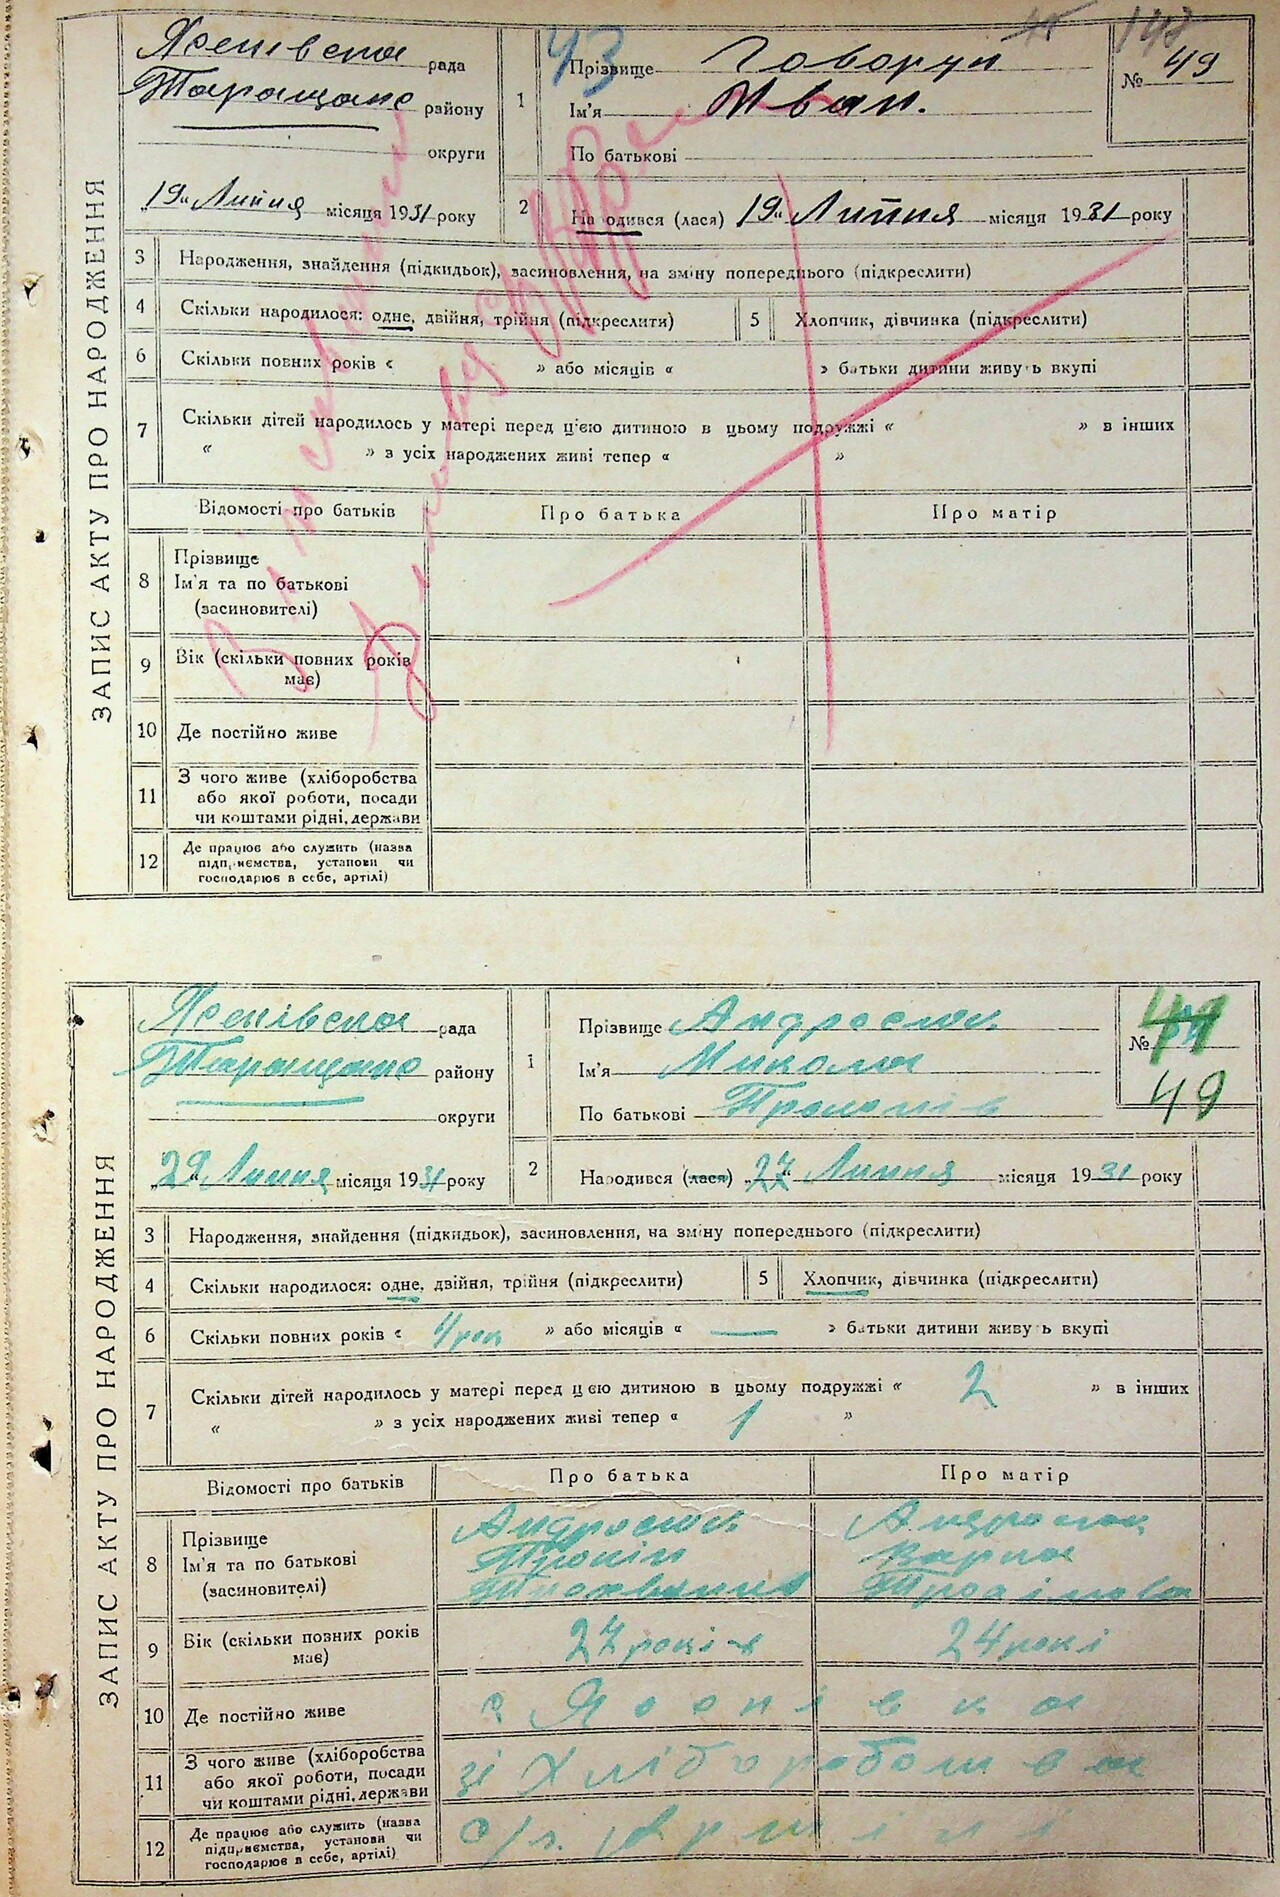 148
ЗАПИС АКТУ ПРО НАРОДЖЕННЯ
Ясенівська рада
Таращансо району
округи
„19“ Липня місяця 1931 року
43
1 Прізвище Говорун
Ім'я Иван.
По батькові
№ 49
2 Народився (лася) „19“ Липня місяця 1931 року
3 Народження, знайдення (підкидьок), засиновлення, на зміну попереднього (підкреслити)
4 Скільки народилося: одне, двійня, трійня (підкреслити) 5 Хлопчик, дівчинка (підкреслити)
6 Скільки повних років « » або місяців « » батьки дитини живуть вкупі
7 Скільки дітей народилось у матері перед цією дитиною в цьому подружжі « » в інших
« » з усіх народжених живі тепер « »
Відомості про батьків Про батька Про матір
8 Прізвище
Ім'я та по батькові
(засиновителі)
9 Вік (скільки повних років
має)
10 Де постійно живе
11 З чого живе (хліборобства
або якої роботи, посади
чи коштами рідні, держави
12 Де працює або служить (назва
підприємства, установи чи
господарює в себе, артілі)
ЗАПИС АКТУ ПРО НАРОДЖЕННЯ
Ясенівська рада
Таращансо району
округи
„29“ Липня місяця 1931 року
1 Прізвище Андросюк
Ім'я Микола
По батькові
№
49
2 Народився (лася) „27“ Липня місяця 1931 року
3 Народження, знайдення (підкидьок), засиновлення, на зміну попереднього (підкреслити)
4 Скільки народилося: одне, двійня, трійня (підкреслити) 5 Хлопчик, дівчинка (підкреслити)
6 Скільки повних років « рок » або місяців « — » батьки дитини живуть вкупі
7 Скільки дітей народилось у матері перед цією дитиною в цьому подружжі « 2 » в інших
« » з усіх народжених живі тепер « 1 »
Відомості про батьків Про батька Про матір
8 Прізвище Андросюк Андросюк
Ім'я та по батькові Варка
(засиновителі)
9 Вік (скільки повних років 27 років 24 рокі
має)
10 Де постійно живе с Ясенівка
11 З чого живе (хліборобства зі Хліборобства
або якої роботи, посади
чи коштами рідні, держави
12 Де працює або служить (назва
підприємства, установи чи
господарює в себе, артілі)